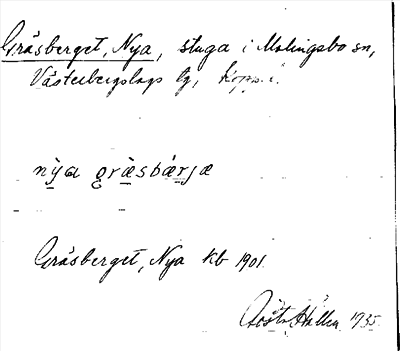 Gräsberget, Nya, stuga i Malingsbo sn,
Västerbergslags tg, Kopp. l.
nỳa græ̀sbǽrjæ
Gräsberget, Nya kb 1901.
Hallén 1935.